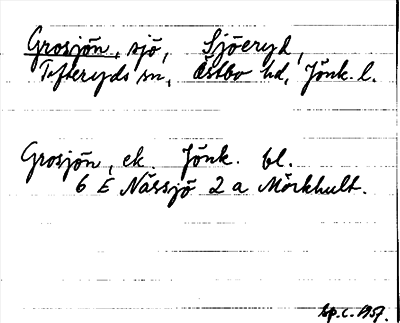 Grosjön, sjö, Sjöeryd,
Tofteryds sn, Östbo hd, Jönk. l.
Grosjön, ek. Jönk. bl.
6 E Nässjö 2 a Mörkhult.
1957.